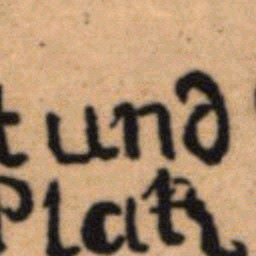 t und
Platz